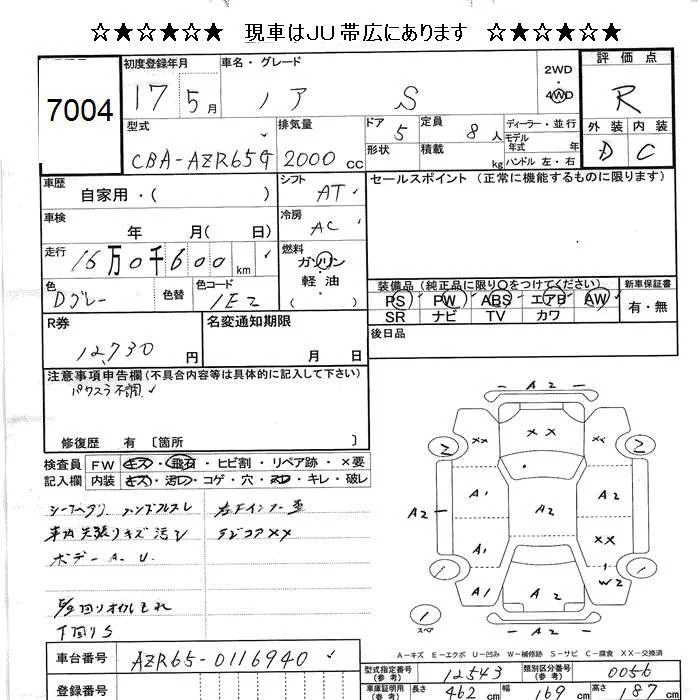 ☆★☆★☆★ 現車はJU帯広にあります ☆★☆★☆★
7004
初度登録年月
17 5月
車名・グレード
ノア S
2WD
4WD
評価点
R
外装 内装
D C
型式
CBA-AZR65G
排気量
2000cc
ドア 5
形状
定員 8人
積載 kg
ディーラー・並行
モデル年式 年
ハンドル 左・右
車歴
自家用・( )
シフト
AT
車検
年 月( 日)
冷房
AC
走行
16万0千600km
燃料
ガソリン
軽・油
( )
色
Dグレー
色替
色コード
1E2
セールスポイント (正常に機能するものに限ります)
装備品(純正品に限り○をつけてください) 新車保証書
PS PW ABS エアB AW
SR ナビ TV カワ
有・無
R券
12,730円
名変通知期限
月 日
後日品
注意事項申告欄(不具合内容等は具体的に記入して下さい)
パワスラ不調
修復歴 有 〔箇所 〕
検査員記入欄
FW キズ・飛石・ヒビ割・リペア跡・×要
内装 キズ・汚レ・コゲ・穴・スレ・キレ・破レ
ボデーA.U.
下回りS
A2
××
××
2
2
A1
A2
A2
A2
A1
××
1
1
A1
A2
W2
1
スペア
A2
A-キズ E-エクボ U-凹み W-補修跡 S-サビ C-腐食 XX-交換済
車台番号
AZR65-0116940
登録番号
型式指定番号(参考)
12543
類別区分番号(参考)
0056
車庫証明用(参考)
長さ 462cm 幅 169cm 高さ 187cm